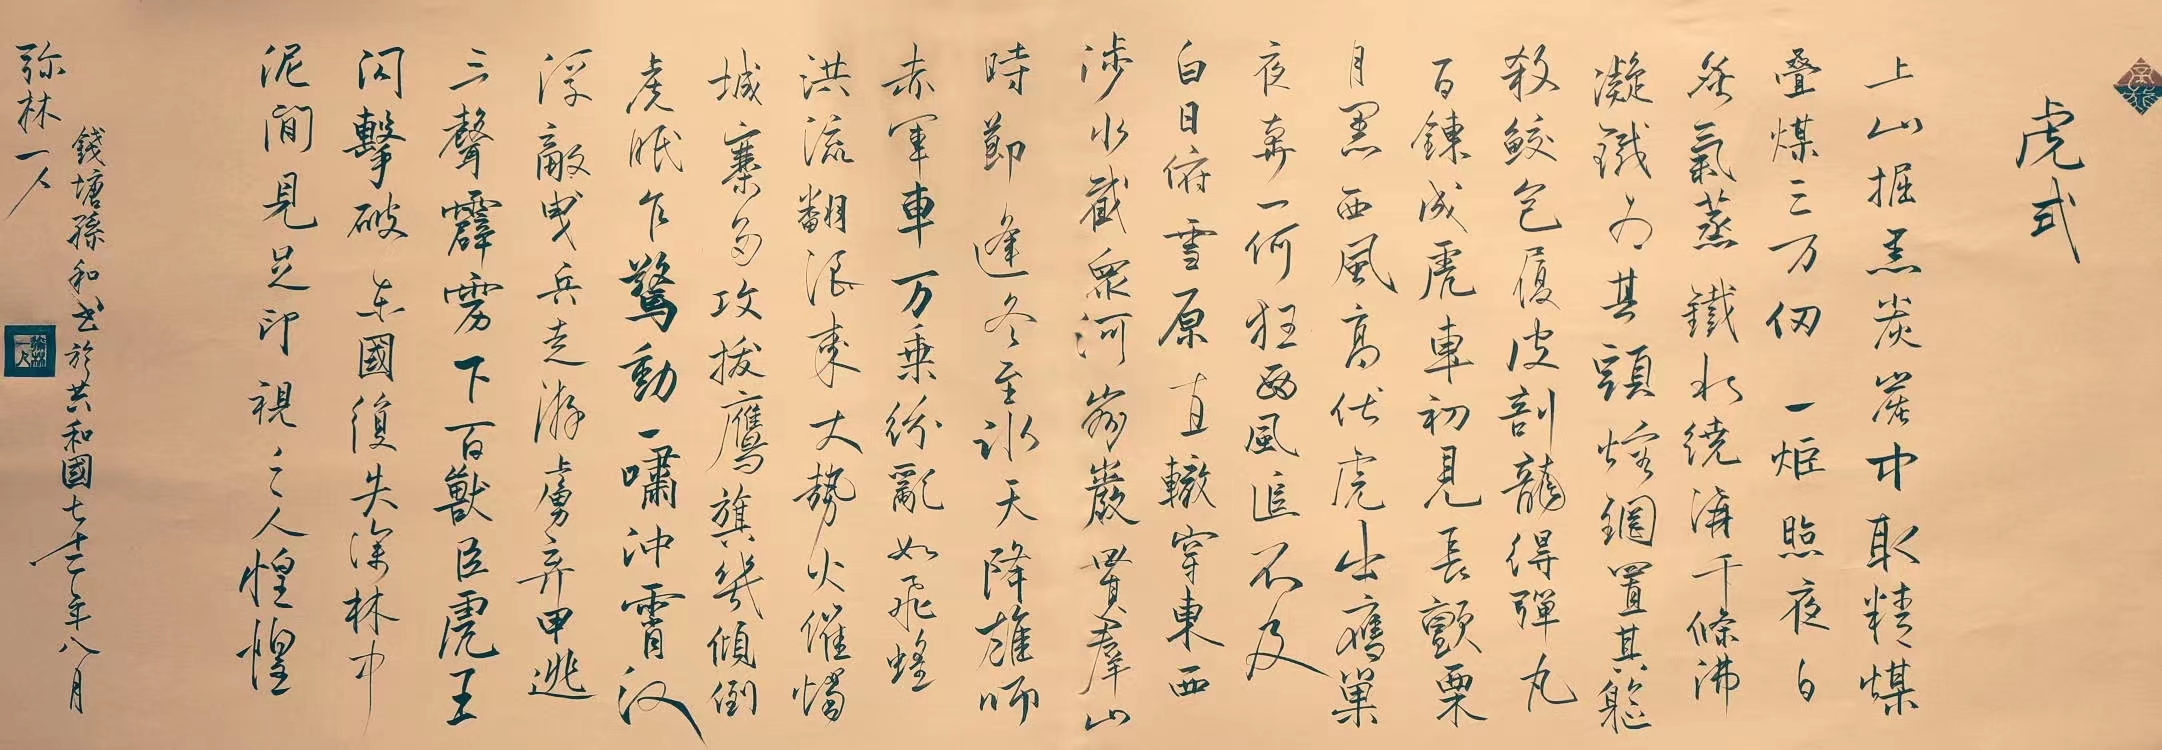 虎式
上山掘黑炭炭中取精煤
叠煤三万仞一炬照夜白
氣蒸鐵水繞溝千條沸
凝鐵为其頭熔鋼置其軀
殺鮫包履皮剖龍得彈丸
百鍊成虎車初見長顫栗
月黑西風高伏虎出鷹巢
夜奔一何狂西風追不及
白日俯雪原直轍穿東西
涉水截眾河崩巖貫羣山
時節逢冬至冰天降雄师
赤軍車万乘紛亂如飛蝗
洪流翻浪来大勢火催燭
城寨多攻拔鷹旗幾傾倒
虎眠乍驚動一嘯沖霄汉
浮敵曳兵走游虜弃甲逃
三聲霹雳下百獸臣虎王
闪擊破东國復失深林中
泥間見足印視之人惶惶
錢塘孫和书於共和國七十二年八月
弥林一人